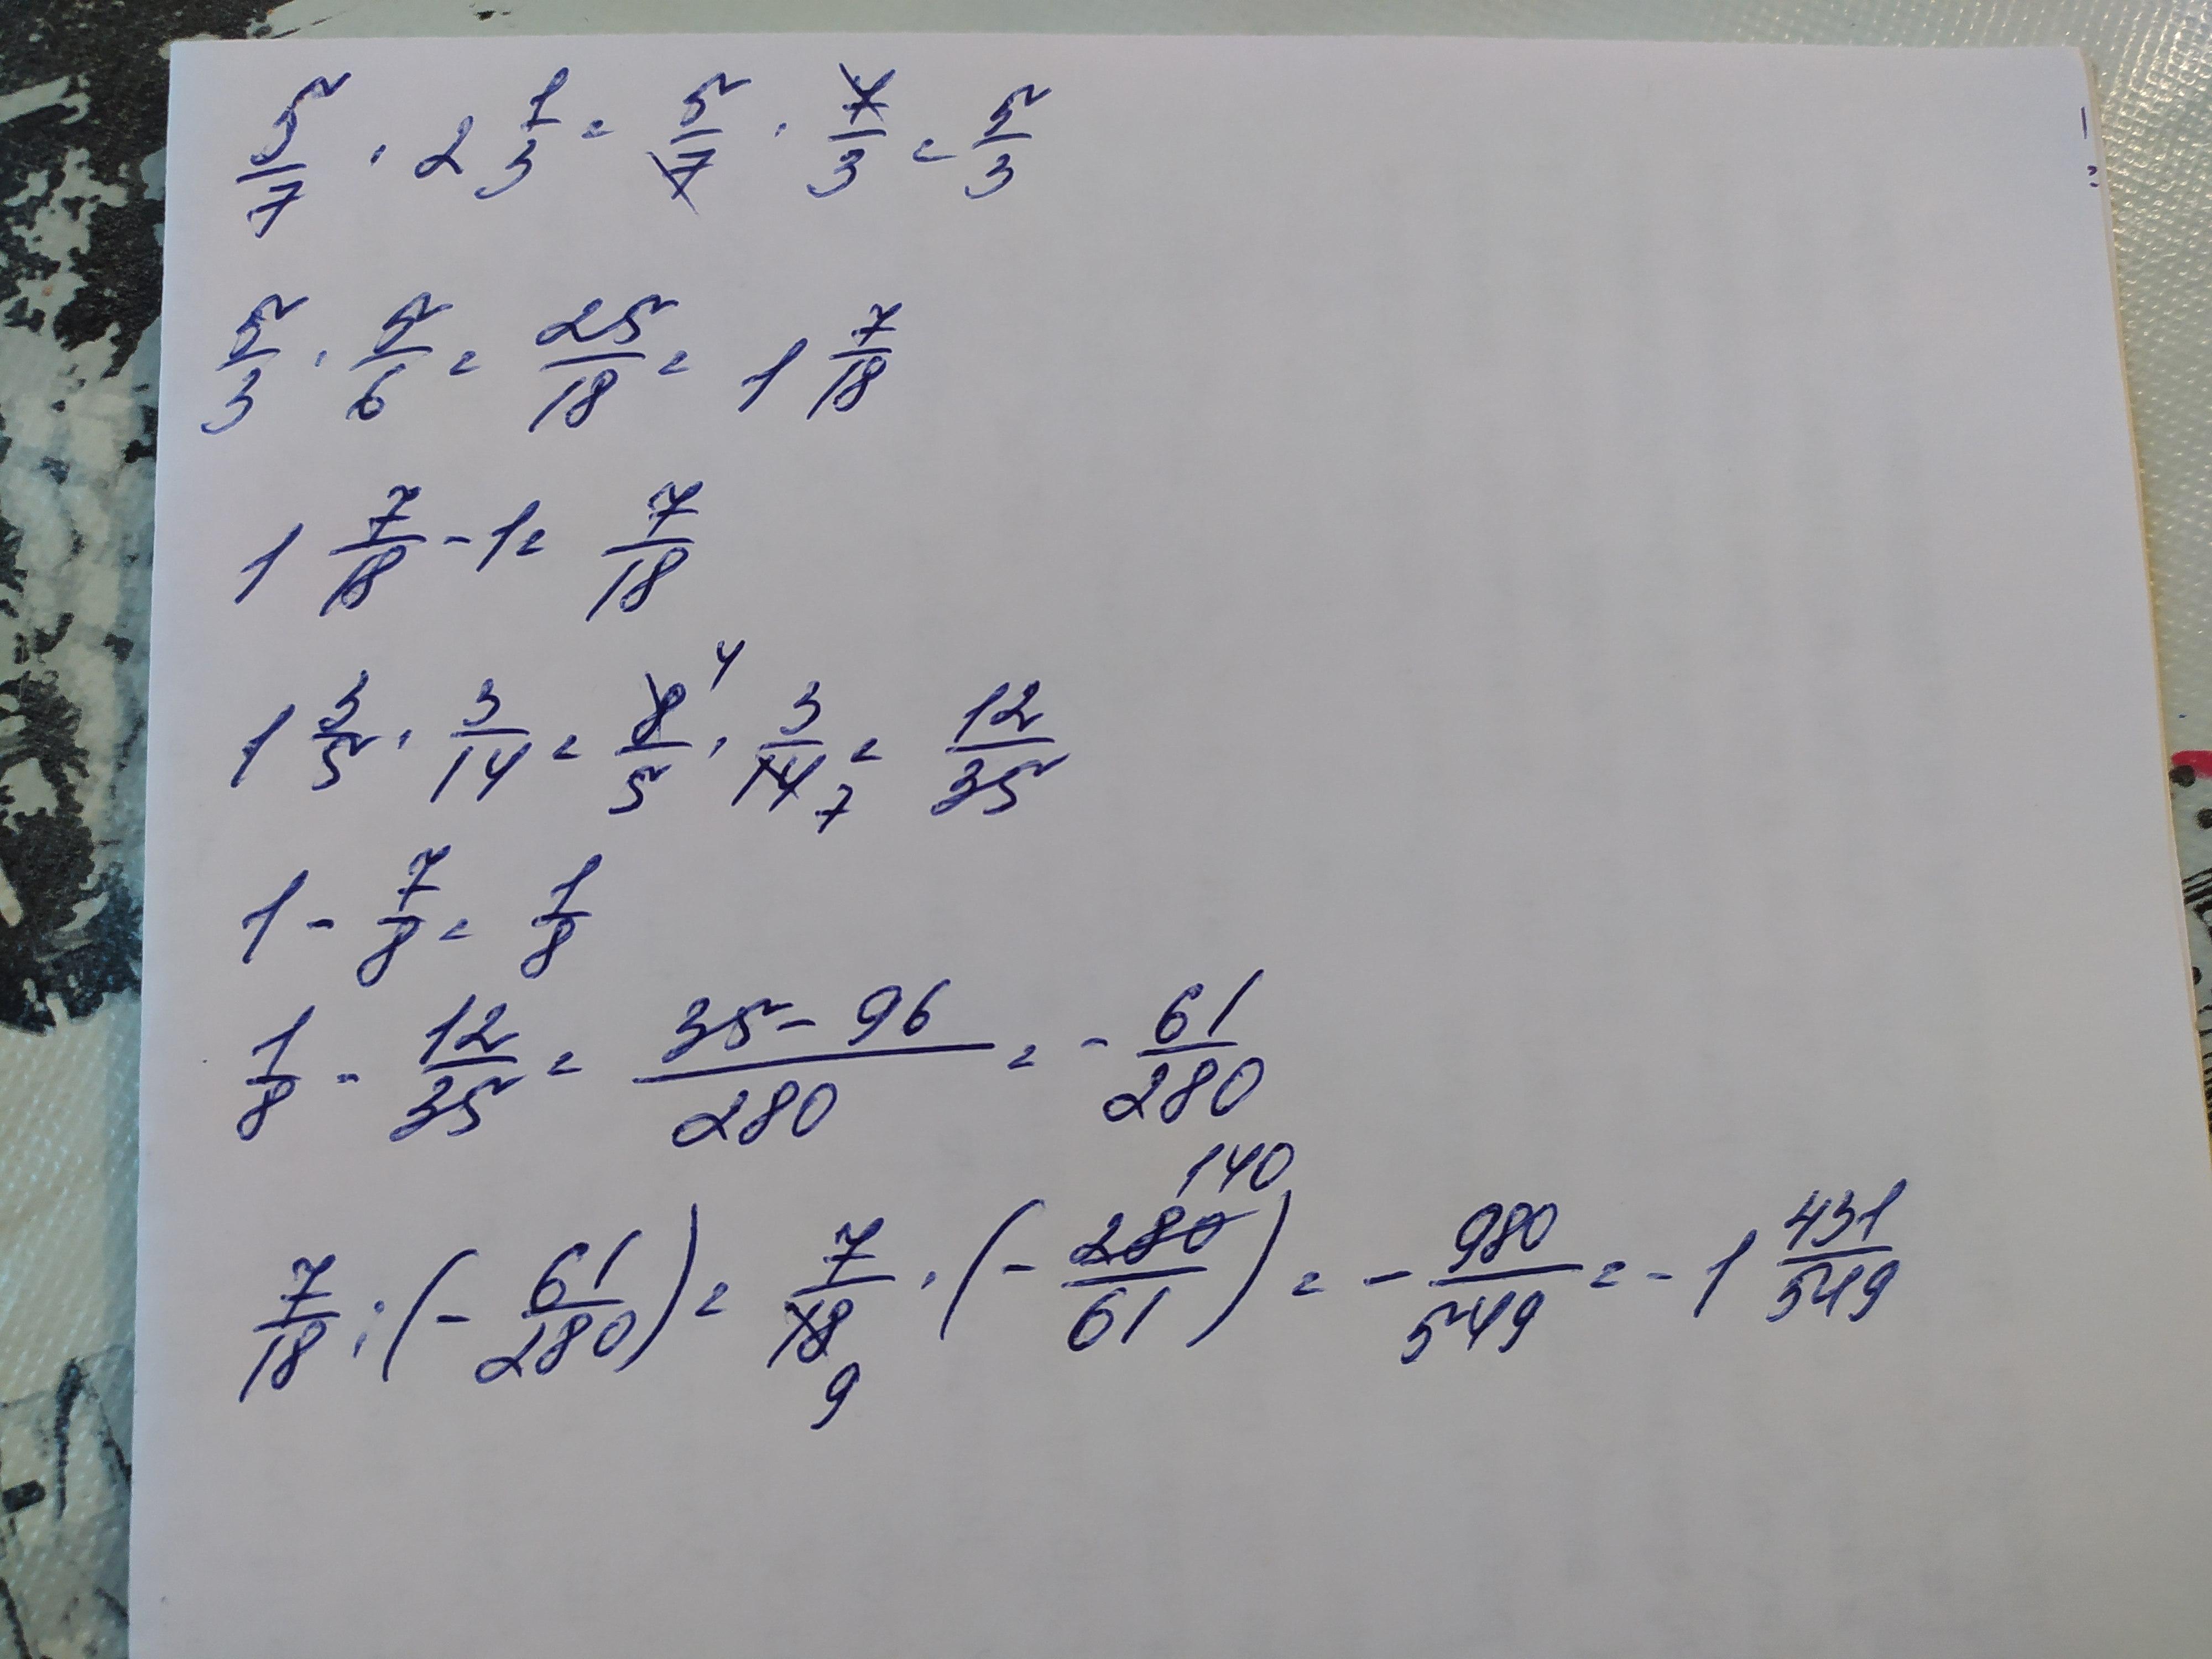 5/7 · 2 1/3 = 5/7 · 7/3 = 5/3
5/3 · 5/6 = 25/18 = 1 7/18
1 7/18 - 1 = 7/18
1 3/5 · 3/14 = 8/5 4 · 3/14 7 = 12/35
1 - 7/8 = 1/8
1/8 - 12/35 = (35 - 96)/280 = - 61/280
7/18 : (- 61/280) = 7/18 9 · (- 280/61 140) = - 980/549 = - 1 431/549